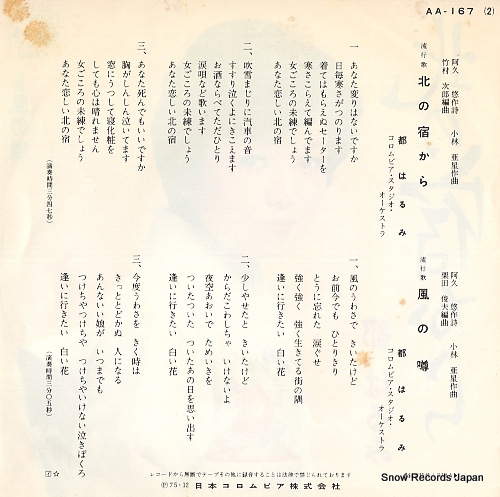 AA-167 (2)
阿久 悠作詩
小林 亜星作曲
竹村 次郎編曲
流行歌
北の宿から
都 はるみ
コロムビア・スタジオ・
オーケストラ
一 あなた変りはないですか
日毎寒さがつのります
着てはもらえぬセーターを
寒さこらえて編んでます
女ごころの未練でしょう
あなた恋しい北の宿
二、吹雪まじりに汽車の音
すすり泣くよにきこえます
お酒ならべてただひとり
涙唄など歌います
女ごころの未練でしょう
あなた恋しい北の宿
三、あなた死んでもいいですか
胸がしんしん泣いてます
窓にうつして寝化粧を
しても心は晴れません
女ごころの未練でしょう
あなた恋しい北の宿
(演奏時間三分四七秒)
阿久 悠作詩
小林 亜星作曲
栗田 俊夫編曲
流行歌
風の噂
都 はるみ
コロムビア・スタジオ・
オーケストラ
一、風のうわさで きいたけど
お前今でも ひとりきり
とうに忘れた 涙ぐせ
強く強く 強く生きてる街の隅
逢いに行きたい 白い花
二、少しやせたと きいたけど
からだこわしちゃ いけないよ
夜空あおいで ためいきを
ついたついた ついたあの日を思い出す
逢いに行きたい 白い花
三、今度うわさを きく時は
きっととどかぬ 人になる
あんないい娘が いつまでも
つけちゃつけちゃ つけちゃいけない泣きぼくろ
逢いに行きたい 白い花
(演奏時間三分〇五秒)
レコードから無断でテープその他に録音することは法律で禁じられております
Ⓟ75・12 日本コロムビア株式会社
Snow Records Japan